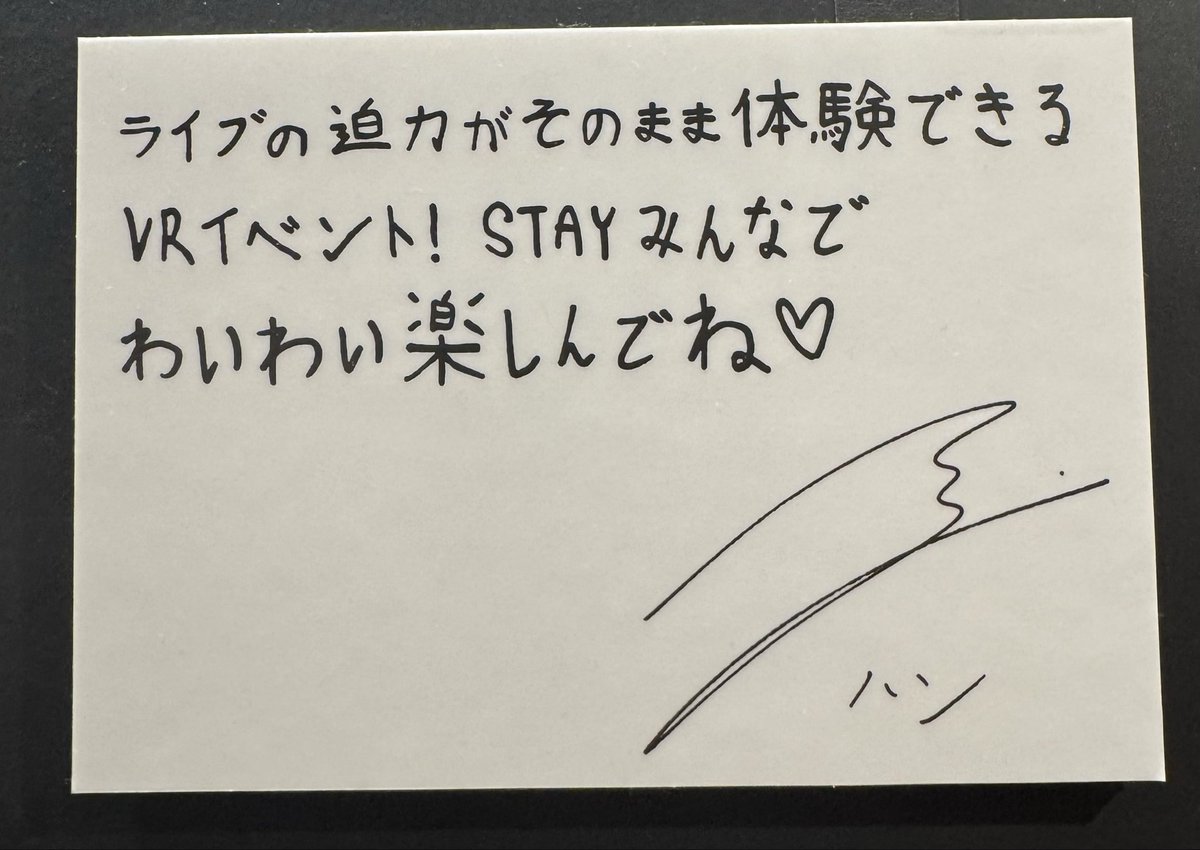 ライブの迫力がそのまま体験できる
VRイベント! STAYみんなで
わいわい楽しんでね♡
ハン